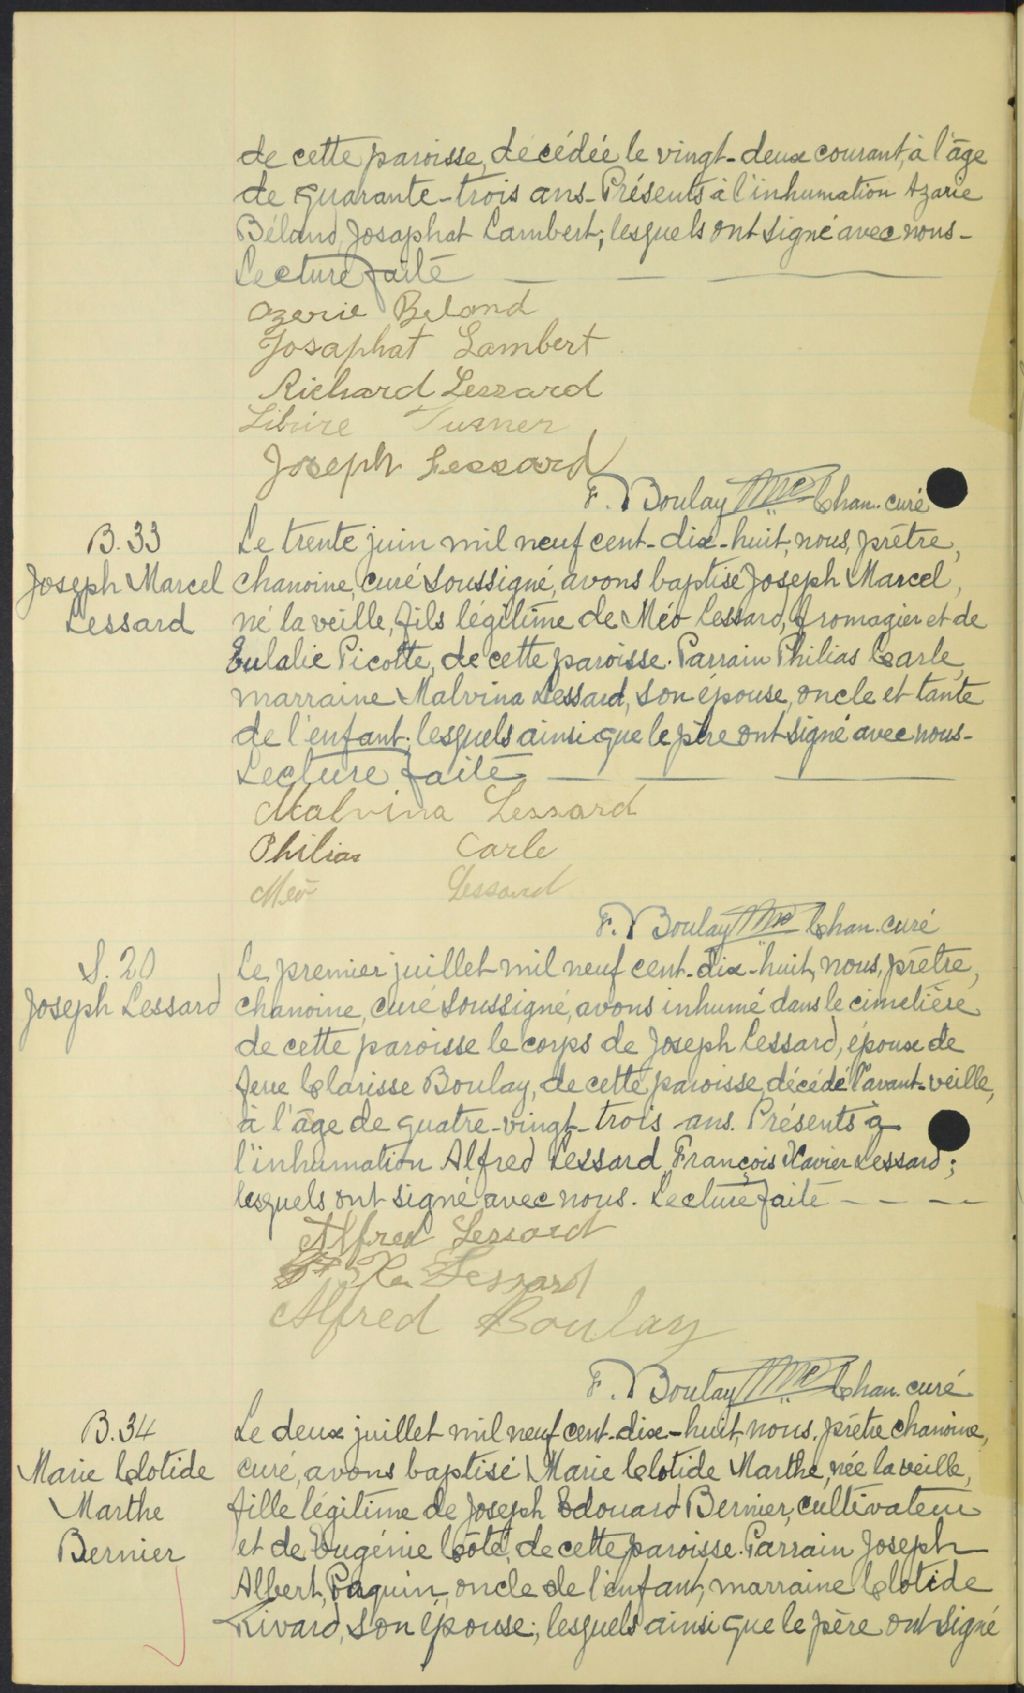 de cette paroisse, décédée le vingt-deux courant, à l'âge
de quarante-trois ans. Présents à l'inhumation Azarie
Béland, Josaphat Lambert; lesquels ont signé avec nous-
Lecture faite
Ozerie Beland
Josaphat Lambert
Richard Lessard
Turner
Joseph Lessard
F. X Boulay Ptre Chan. curé
B. 33
Joseph Marcel
Lessard
Le trente juin mil neuf cent-dix-huit, nous, prêtre,
chanoine, curé soussigné, avons baptisé Joseph Marcel,
né la veille, fils légitime de Méo Lessard, fromagier et de
Eulalie Picotte, de cette paroisse. Parrain Philias Carle,
marraine Malvina Lessard, son épouse, oncle et tante
de l'enfant; lesquels ainsi que le père ont signé avec nous-
Lecture faite
Malvina Lessard
Philias Carle
Méo Lessard
F. X Boulay Ptre Chan. curé
S. 20
Joseph Lessard
Le premier juillet mil neuf cent-dix-huit, nous, prêtre,
chanoine, curé soussigné, avons inhumé dans le cimetière
de cette paroisse le corps de Joseph Lessard, époux de
feue Clarisse Boulay, de cette paroisse, décédé l'avant-veille,
à l'âge de quatre-vingt-trois ans. Présents à
l'inhumation Alfred Lessard, François Xavier Lessard;
lesquels ont signé avec nous. Lecture faite - - - -
Alfred Lessard
Lessard
Alfred Boulay
F. X Boulay Ptre Chan. curé
B. 34
Marie Clotide
Marthe
Bernier
Le deux juillet mil neuf cent-dix-huit, nous, prêtre chanoine,
curé, avons baptisé Marie Clotide Marthe, née la veille,
fille légitime de Joseph Edouard Bernier, cultivateur
et de Eugénie Côté, de cette paroisse. Parrain Joseph
Albert Paquin, oncle de l'enfant, marraine Clotide
Rivard, son épouse; lesquels ainsi que le père ont signé